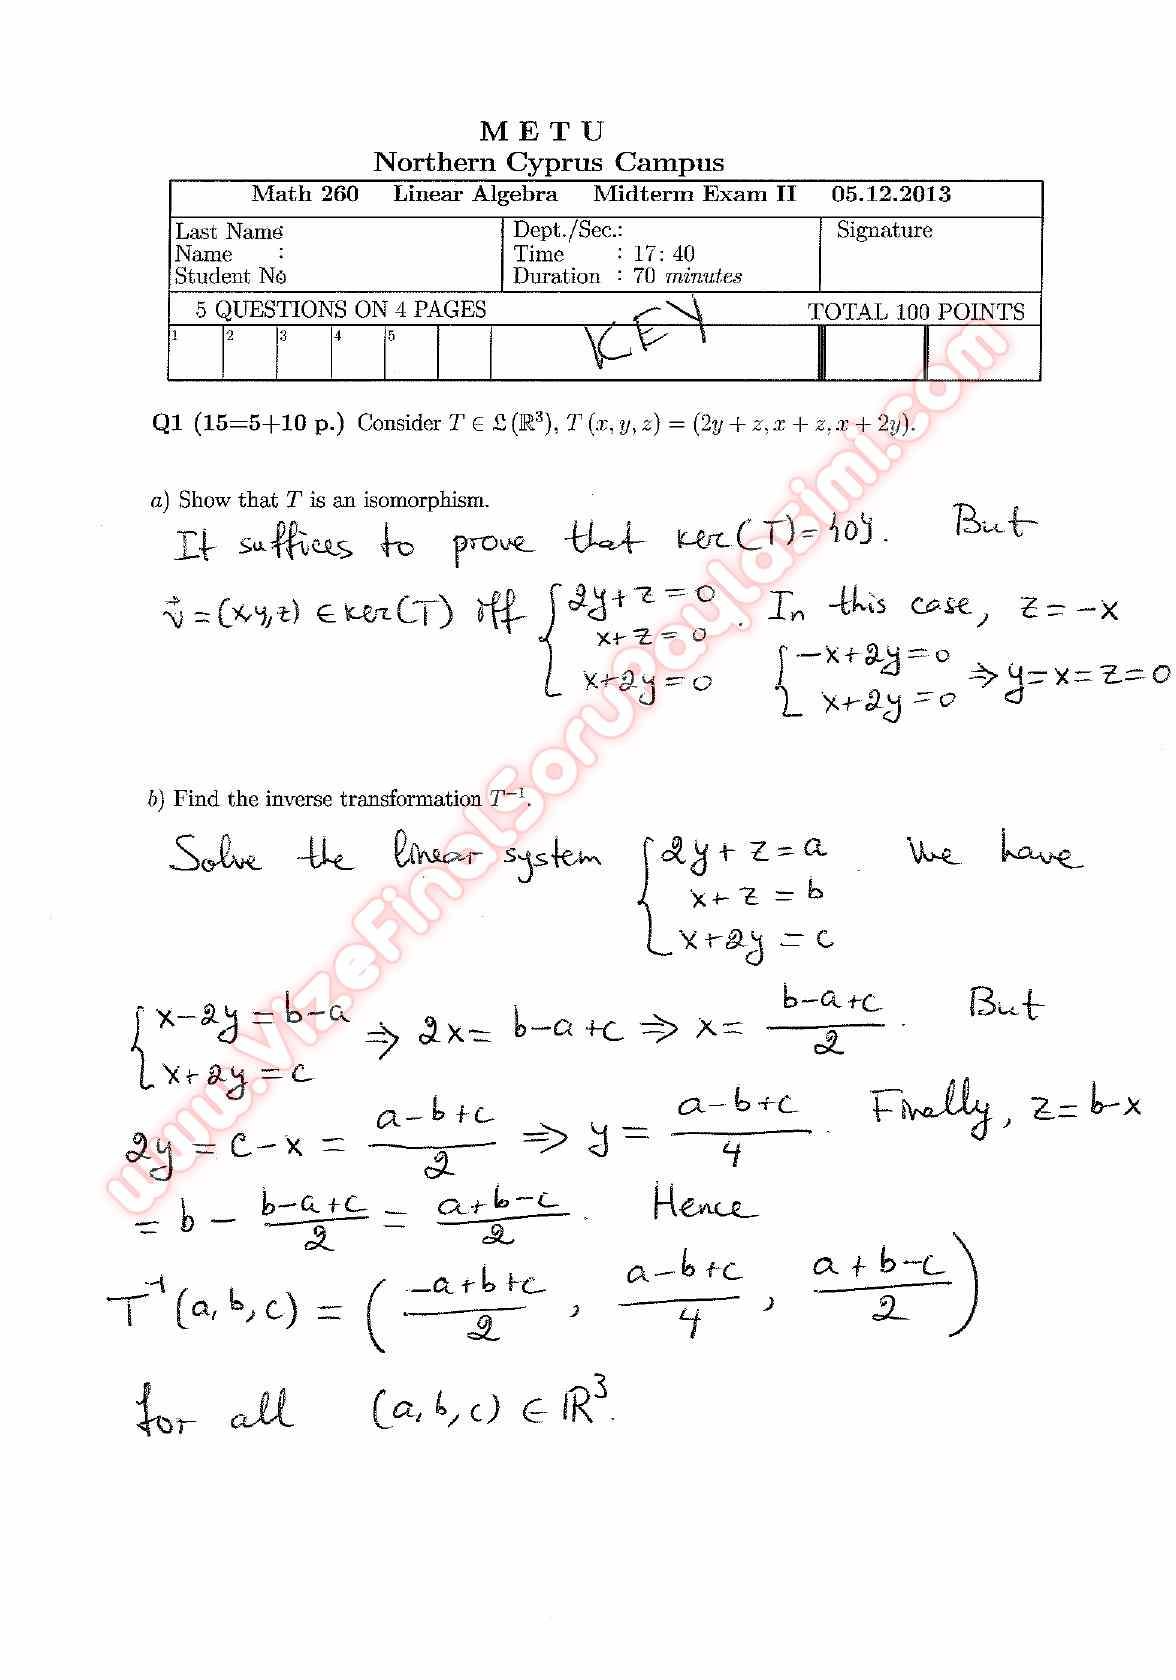 M E T U
Northern Cyprus Campus
Math 260 Linear Algebra Midterm Exam II 05.12.2013
Last Name: Dept./Sec.: Signature
Name : Time : 17: 40
Student No: Duration : 70 minutes
5 QUESTIONS ON 4 PAGES KEY TOTAL 100 POINTS
1 2 3 4 5
Q1 (15=5+10 p.) Consider T ∈ 𝔏(ℝ³), T (x, y, z) = (2y + z, x + z, x + 2y).
a) Show that T is an isomorphism.
It suffices to prove that ker(T)={0}. But
v⃗ = (x,y,z) ∈ ker(T) iff { 2y+z=0, x+z=0, x+2y=0 . In this case, z=-x
{ -x+2y=0, x+2y=0 ⇒ y=x=z=0
b) Find the inverse transformation T⁻¹.
Solve the linear system { 2y+z=a, x+z=b, x+2y=c . We have
{ x-2y=b-a, x+2y=c ⇒ 2x= b-a+c ⇒ x= (b-a+c)/2 . But
2y = c-x = (a-b+c)/2 ⇒ y = (a-b+c)/4 . Finally, z=b-x
= b - (b-a+c)/2 = (a+b-c)/2 . Hence
T⁻¹(a,b,c) = ( (-a+b+c)/2 , (a-b+c)/4 , (a+b-c)/2 )
for all (a,b,c) ∈ ℝ³.
www.VizeFinalSoruPaylasimi.com